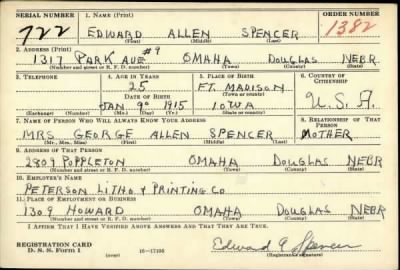 SERIAL NUMBER 1. NAME (Print) ORDER NUMBER
722 EDWARD ALLEN SPENCER 1382
(First) (Middle) (Last)
2. ADDRESS (Print)
1317 PARK AVE #9 OMAHA DOUGLAS NEBR.
(Number and street or R. F. D. number) (Town) (County) (State)
3. TELEPHONE 4. AGE IN YEARS 5. PLACE OF BIRTH 6. COUNTRY OF CITIZENSHIP
25 FT. MADISON
DATE OF BIRTH (Town or county)
JAN 9 1915 IOWA U.S.A.
(Exchange) (Number) (Mo.) (Day) (Yr.) (State or country)
7. NAME OF PERSON WHO WILL ALWAYS KNOW YOUR ADDRESS 8. RELATIONSHIP OF THAT PERSON
MRS GEORGE ALLEN SPENCER MOTHER
(Mr., Mrs., Miss) (First) (Middle) (Last)
9. ADDRESS OF THAT PERSON
2809 POPPLETON OMAHA DOUGLAS NEBR
(Number and street or R. F. D. number) (Town) (County) (State)
10. EMPLOYER'S NAME
PETERSON LITHO. & PRINTING CO
11. PLACE OF EMPLOYMENT OR BUSINESS
1309 HOWARD OMAHA DOUGLAS NEBR
(Number and street or R. F. D. number) (Town) (County) (State)
I AFFIRM THAT I HAVE VERIFIED ABOVE ANSWERS AND THAT THEY ARE TRUE.
REGISTRATION CARD
D. S. S. Form 1 16—17105 Edward A Spencer
(Registrant's signature)